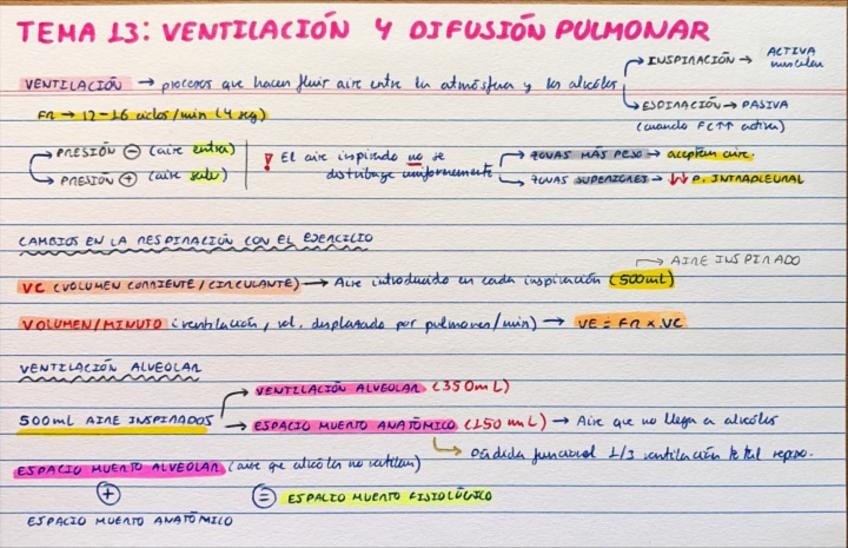 TEMA 13: VENTILACIÓN Y DIFUSIÓN PULMONAR
VENTILACIÓN → procesos que hacen fluir aire entre la atmósfera y los alvéolos
INSPIRACIÓN → ACTIVA
ESPIRACIÓN → PASIVA
(cuando FC↑↑ activa)
FR → 12-16 ciclos/min (4 seg)
PRESIÓN ⊖ (aire entra)
PRESIÓN ⊕ (aire sale)
! El aire inspirado no se
distribuye uniformemente
ZONAS MÁS PESO → aceptan aire.
ZONAS SUPERIORES → ↓↓ P. INTRAPLEURAL
CAMBIOS EN LA RESPIRACIÓN CON EL EJERCICIO
→ AIRE INSPIRADO
VC (VOLUMEN CORRIENTE/CIRCULANTE) → Aire introducido en cada inspiración (500ml)
VOLUMEN/MINUTO (ventilación, vol. desplazado por pulmones/min) → VE = FR x VC
VENTILACIÓN ALVEOLAR
500ml AIRE INSPIRADOS
VENTILACIÓN ALVEOLAR (350mL)
ESPACIO MUERTO ANATÓMICO (150 mL) → Aire que no llega a alvéolos
Pérdida funcional 1/3 ventilación total reposo.
ESPACIO MUERTO ALVEOLAR (aire que alvéolos no ventilan)
⊕
ESPACIO MUERTO ANATÓMICO
= ESPACIO MUERTO FISIOLÓGICO